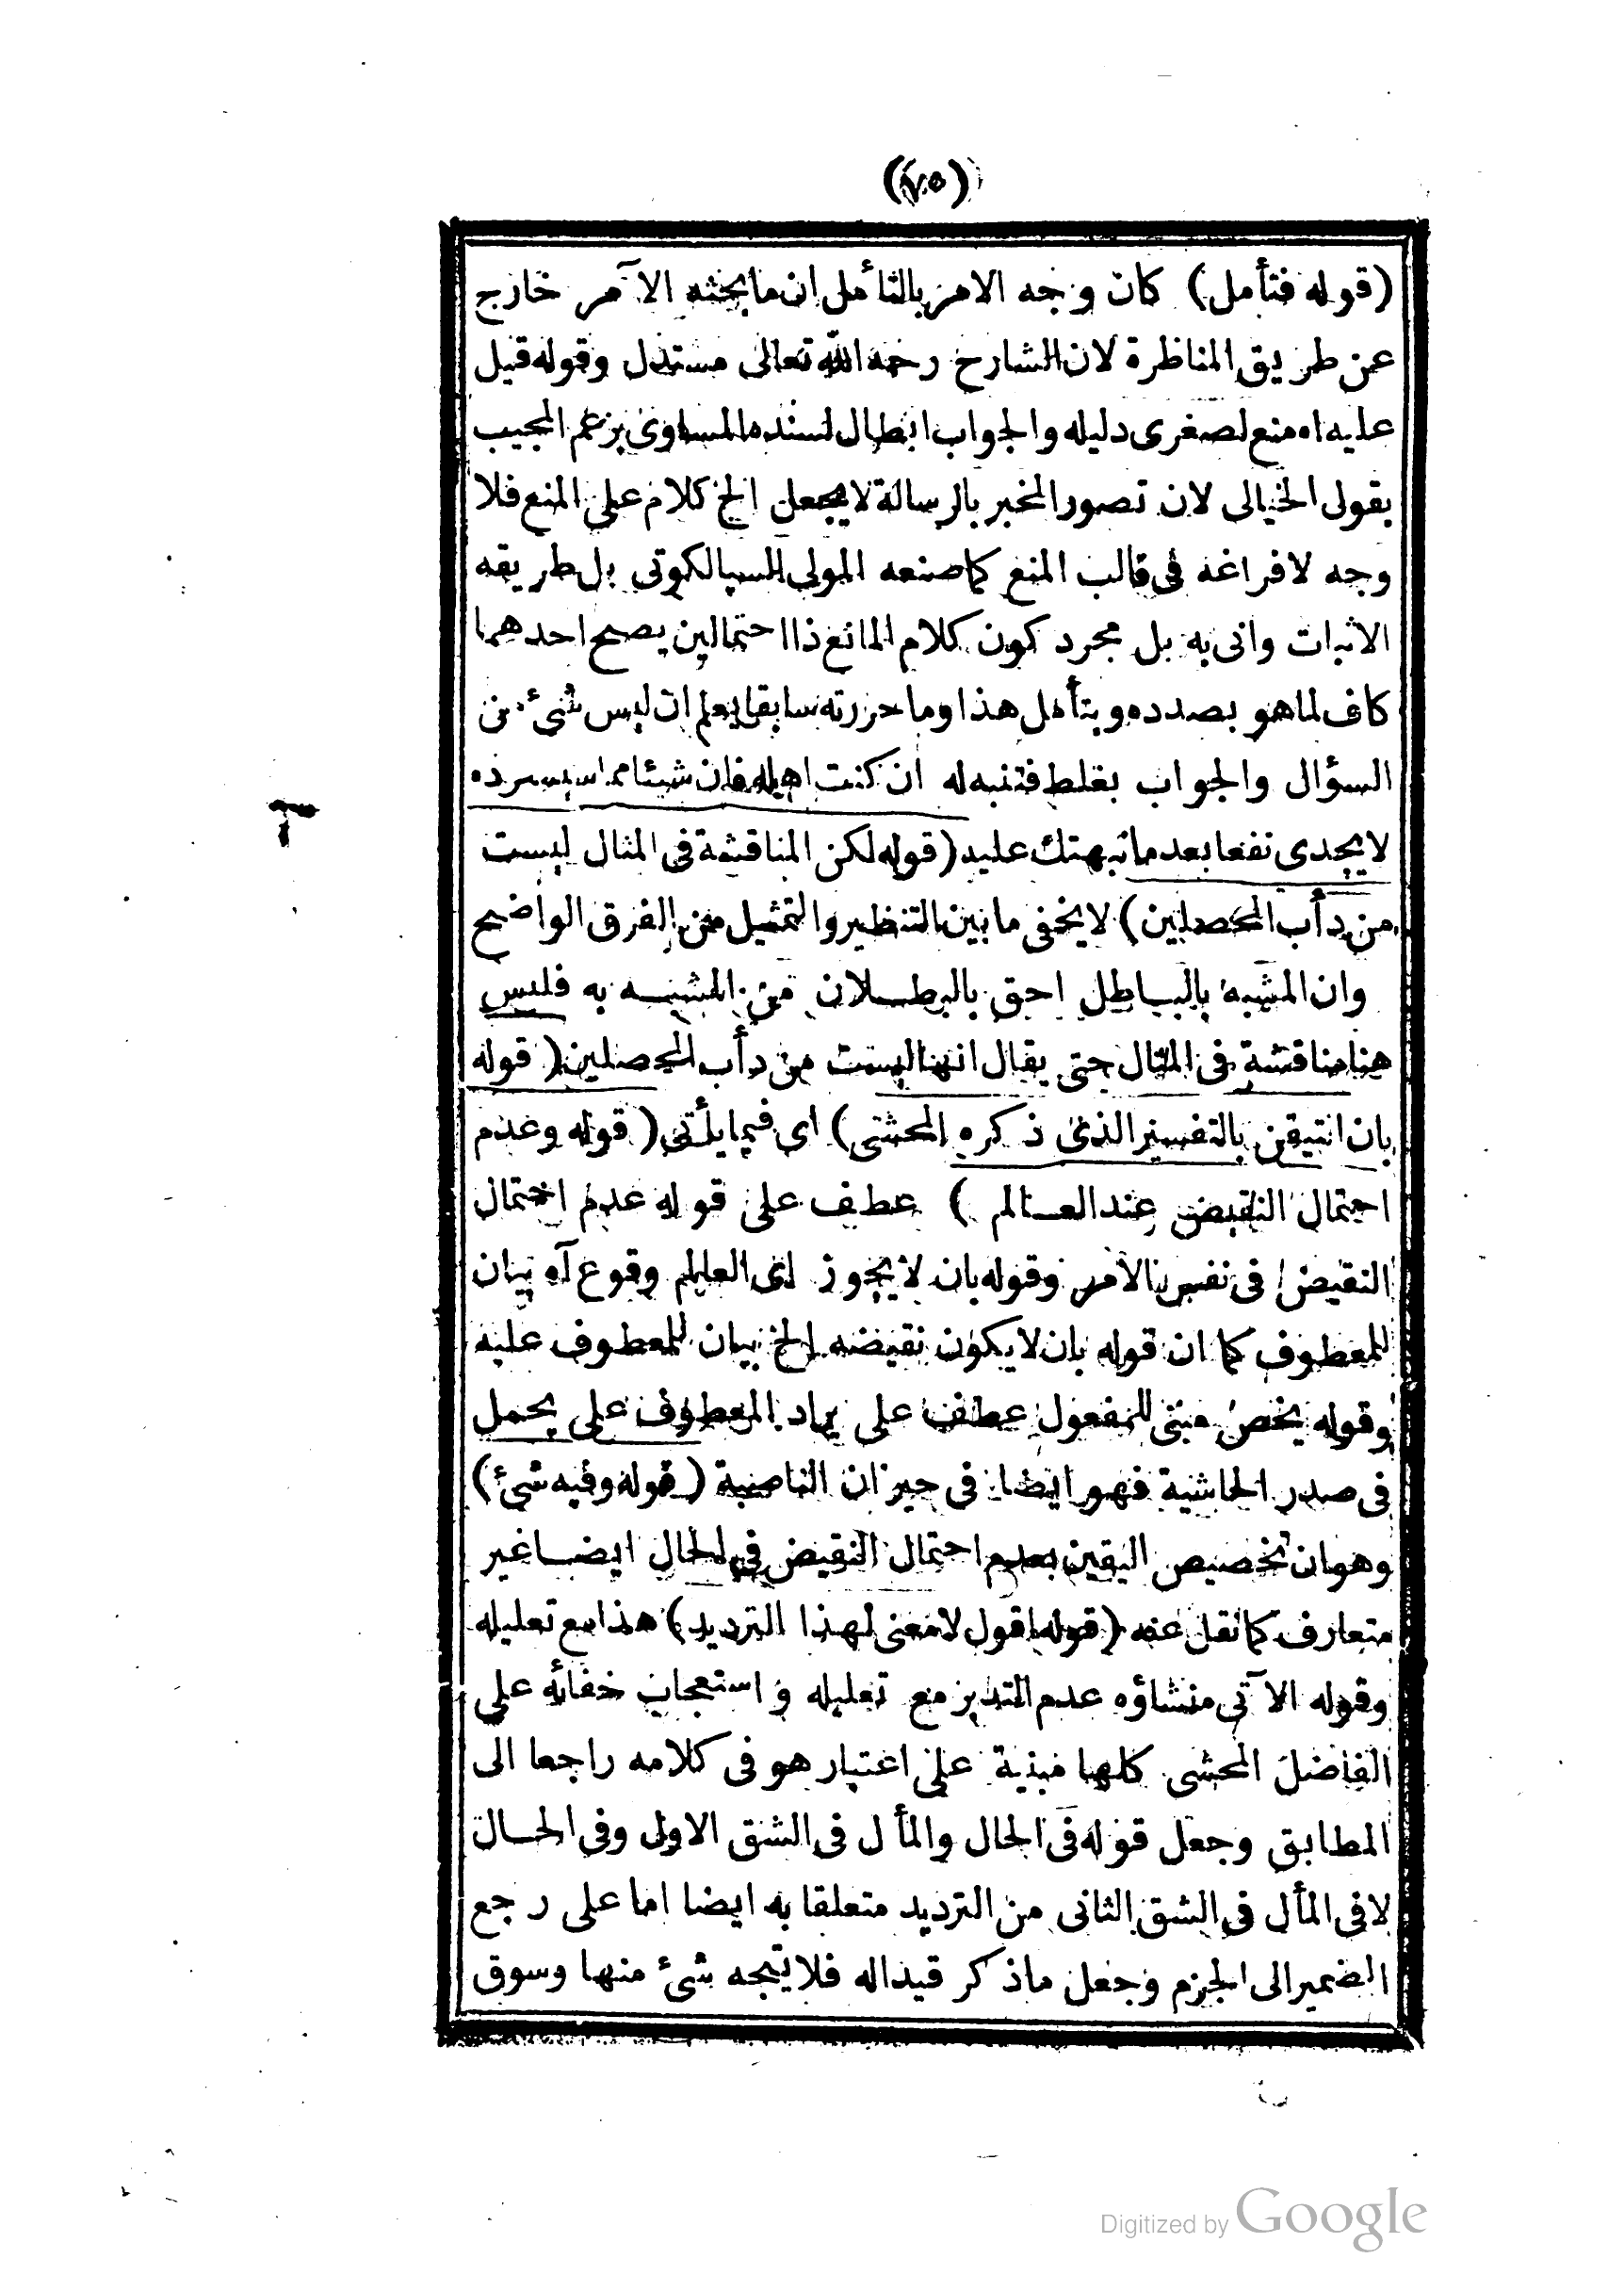 (٧٥)
(قوله فتأمل) كان وجه الامر بالتأمل ان ما بحثه الآمر خارج
عن طريق المناظرة لان الشارح رحمه الله تعالى مستدل وقوله قيل
عليه اه منع لصغرى دليله والجواب ابطال لسنده المساوى بزعم المجيب
بقولى الخيالى لان تصور المخبر بالرسالة لا يجعل الخ كلام على المنع فلا
وجه لافراغه فى قالب المنع كما صنعه المولى السيالكوتى بل طريقه
الاثبات وانى به بل مجرد كون كلام المانع ذا احتمالين يصح احدهما
كاف لما هو بصدده وبتأمل هذا وما حررته سابقا يعلم ان ليس شئ من
السؤال والجواب بغلط فتنبه له ان كنت اهله فان شيئا مما سيسرده
لا يجدى نفعا بعد ما نبهتك عليه (قوله لكن المناقشة فى المثال ليست
من دأب المحصلين) لا يخفى ما بين التنظير والتمثيل من الفرق الواضح
وان المشبه بالباطل احق بالبطلان من المشبه به فليس
هنا مناقشة فى المثال حتى يقال انها ليست من دأب المحصلين (قوله
بان انتيقن بالتفسير الذى ذكره المحشى) اى فيما يأتى (قوله وعدم
احتمال النقيض عند العالم) عطف على قوله عدم احتمال
النقيض فى نفس الامر وقوله بان لا يجوز لدى العالم وقوع آه بيان
للمعطوف كما ان قوله بان لا يكون نقيضه الخ بيان للمعطوف عليه
وقوله يخص مبنى للمفعول عطف على يراد المعطوف على يحمل
فى صدر الحاشية فهو ايضا فى حيز ان الناصبة (قوله وفيه شئ)
وهو ان تخصيص اليقين بعدم احتمال النقيض فى الحال ايضا غير
متعارف كما نقل عنه (قوله اقول لا معنى لهذا الترديد) هذا مع تعليله
وقوله الآتى منشاؤه عدم التدبر مع تعليله و استعجاب خفائه على
الفاضل المحشى كلها مبنية على اعتبار هو فى كلامه راجعا الى
المطابق وجعل قوله فى الحال والمأل فى الشق الاول وفى الحال
لا فى المأل فى الشق الثانى من الترديد متعلقا به ايضا اما على رجع
الضمير الى الجزم وجعل ما ذكر قيدا له فلا يتجه شئ منها وسوق
Digitized by Google